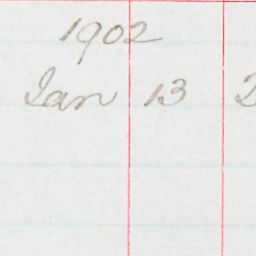 1902
Jan 13